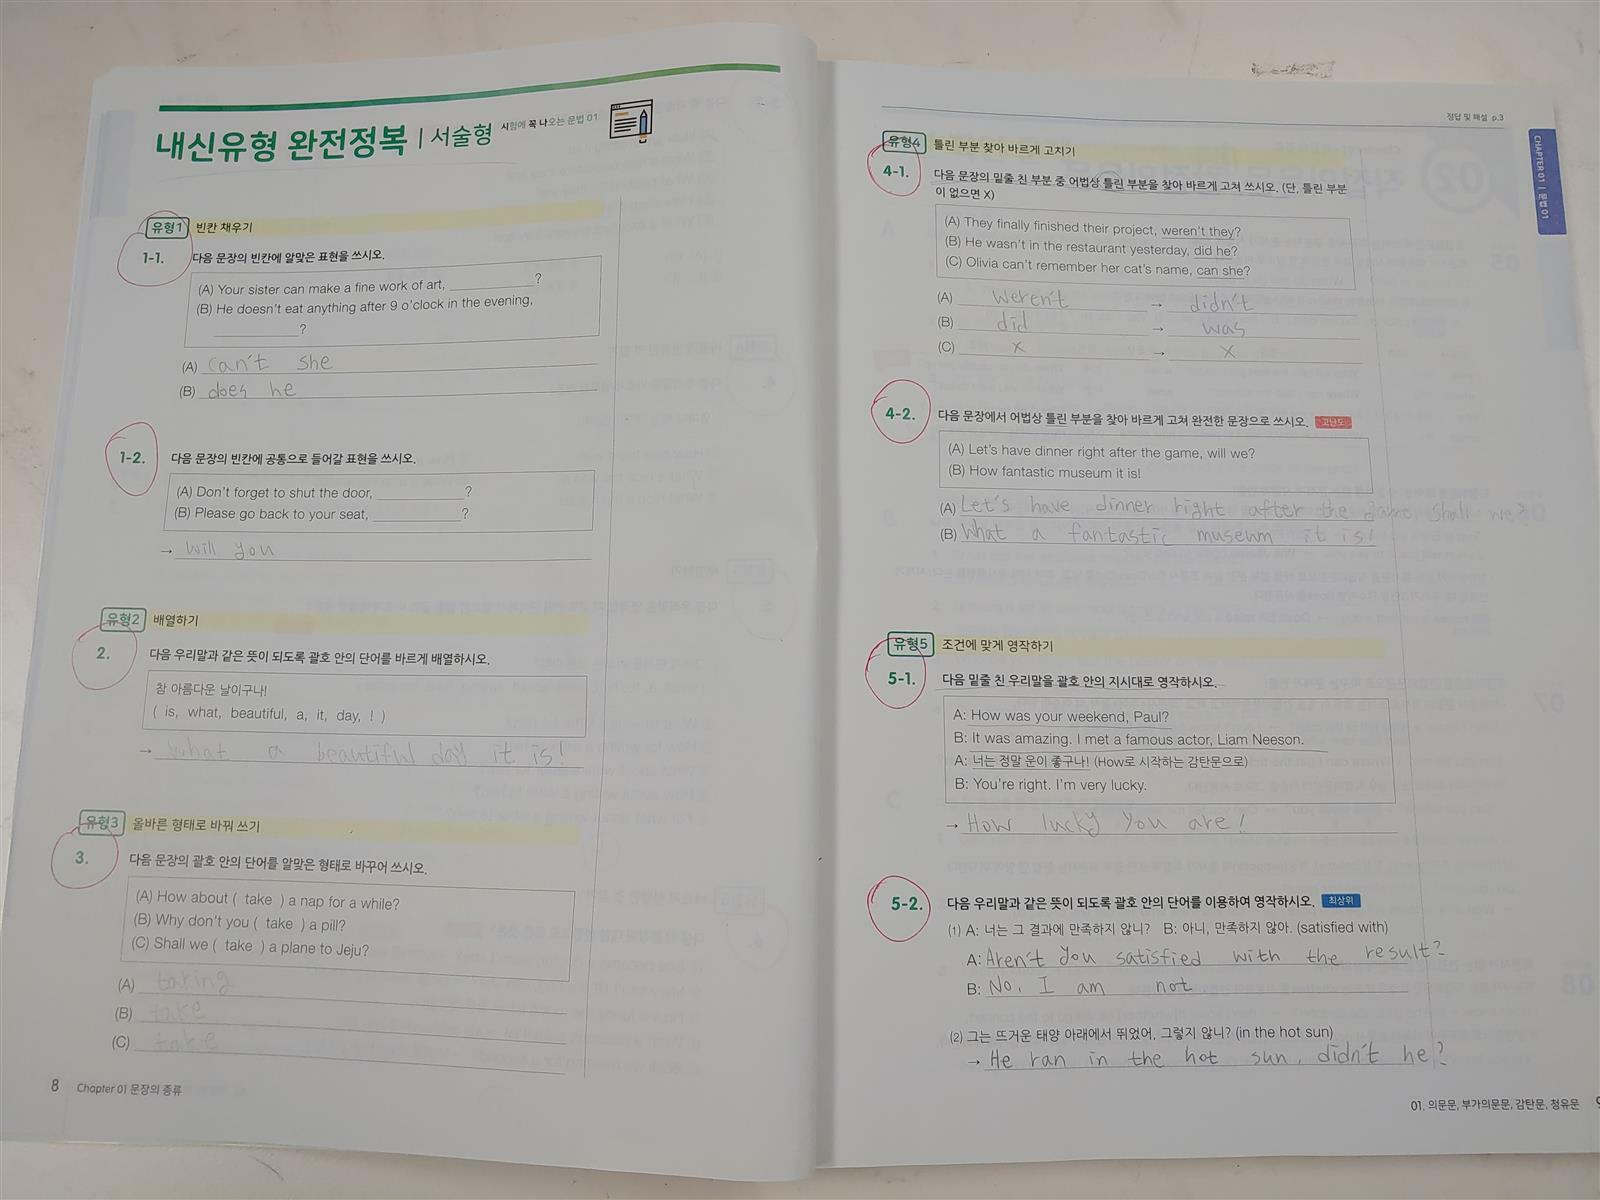 내신유형 완전정복 | 서술형 시험에 꼭 나오는 문법 01
유형1 빈칸 채우기
1-1. 다음 문장의 빈칸에 알맞은 표현을 쓰시오.
(A) Your sister can make a fine work of art, ____________?
(B) He doesn't eat anything after 9 o'clock in the evening,
____________?
(A) can't she
(B) does he
1-2. 다음 문장의 빈칸에 공통으로 들어갈 표현을 쓰시오.
(A) Don't forget to shut the door, ____________?
(B) Please go back to your seat, ____________?
→ will you
유형2 배열하기
2. 다음 우리말과 같은 뜻이 되도록 괄호 안의 단어를 바르게 배열하시오.
참 아름다운 날이구나!
( is, what, beautiful, a, it, day, ! )
→ what a beautiful day it is!
유형3 올바른 형태로 바꿔 쓰기
3. 다음 문장의 괄호 안의 단어를 알맞은 형태로 바꾸어 쓰시오.
(A) How about ( take ) a nap for a while?
(B) Why don't you ( take ) a pill?
(C) Shall we ( take ) a plane to Jeju?
(A) taking
(B) take
(C) take
8 Chapter 01 문장의 종류
정답 및 해설 p.3
CHAPTER 01 | 문법 01
유형4 틀린 부분 찾아 바르게 고치기
4-1. 다음 문장의 밑줄 친 부분 중 어법상 틀린 부분을 찾아 바르게 고쳐 쓰시오. (단, 틀린 부분
이 없으면 X)
(A) They finally finished their project, weren't they?
(B) He wasn't in the restaurant yesterday, did he?
(C) Olivia can't remember her cat's name, can she?
(A) weren't → didn't
(B) did → was
(C) x → x
4-2. 다음 문장에서 어법상 틀린 부분을 찾아 바르게 고쳐 완전한 문장으로 쓰시오. 고난도
(A) Let's have dinner right after the game, will we?
(B) How fantastic museum it is!
(A) Let's have dinner right after the game, shall we?
(B) What a fantastic museum it is!
유형5 조건에 맞게 영작하기
5-1. 다음 밑줄 친 우리말을 괄호 안의 지시대로 영작하시오.
A: How was your weekend, Paul?
B: It was amazing. I met a famous actor, Liam Neeson.
A: 너는 정말 운이 좋구나! (How로 시작하는 감탄문으로)
B: You're right. I'm very lucky.
→ How lucky you are!
5-2. 다음 우리말과 같은 뜻이 되도록 괄호 안의 단어를 이용하여 영작하시오. 최상위
(1) A: 너는 그 결과에 만족하지 않니? B: 아니, 만족하지 않아. (satisfied with)
A: Aren't you satisfied with the result?
B: No, I am not.
(2) 그는 뜨거운 태양 아래에서 뛰었어, 그렇지 않니? (in the hot sun)
→ He ran in the hot sun, didn't he?
01. 의문문, 부가의문문, 감탄문, 청유문